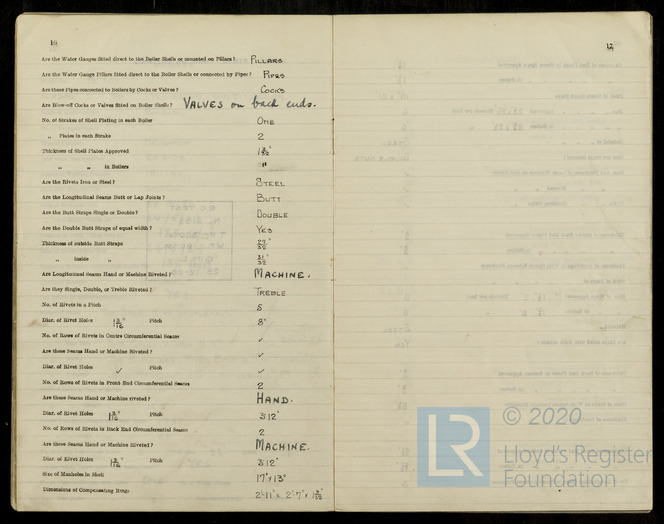 16
Are the Water Gauges fitted direct to the Boiler Shells or mounted on Pillars? PILLARS
Are the Water Gauge Pillars fitted direct to the Boiler Shells or connected by Pipes? PIPES
Are these Pipes connected to Boilers by Cocks or Valves? COCKS
Are Blow-off Cocks or Valves fitted on Boiler Shells? VALVES on back ends.
No. of Strakes of Shell Plating in each Boiler ONE
„ Plates in each Strake 2
Thickness of Shell Plates Approved
„ „ in Boilers "
Are the Rivets Iron or Steel? STEEL
Are the Longitudinal Seams Butt or Lap Joints? BUTT
Are the Butt Straps Single or Double? DOUBLE
Are the Double Butt Straps of equal width? YES
Thickness of outside Butt Straps 27/32"
„ inside „ 31/32"
Are Longitudinal Seams Hand or Machine Riveted? MACHINE.
Are they Single, Double, or Treble Riveted? TREBLE
No. of Rivets in a Pitch
Diar. of Rivet Holes 1 3/16" Pitch 8"
No. of Rows of Rivets in Centre Circumferential Seams ✓
Are these Seams Hand or Machine Riveted? ✓
Diar. of Rivet Holes ✓ Pitch ✓
No. of Rows of Rivets in Front End Circumferential Seams 2
Are these Seams Hand or Machine riveted? HAND.
Diar. of Rivet Holes 1 3/16" Pitch 3.12"
No. of Rows of Rivets in Back End Circumferential Seams 2
Are these Seams Hand or Machine Riveted? MACHINE.
Diar. of Rivet Holes 1 3/16" Pitch 3.12"
Size of Manholes in Shell 17" x 13"
Dimensions of Compensating Rings 2'-11" x 2'-7" x
17
LR
© 2020
Lloyd's Register
Foundation